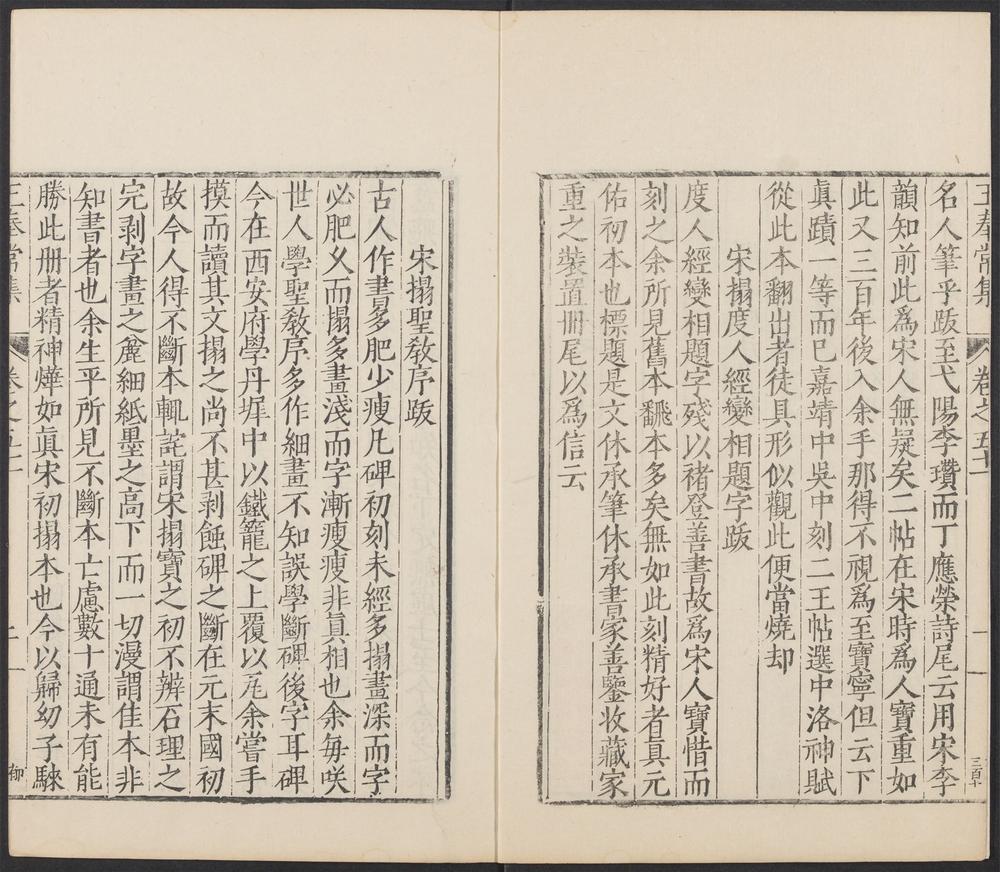 王奉常集　卷之五十　一　三百十
名人筆乎跋至弋陽李瓚而丁應榮詩尾云用宋李
韻知前此爲宋人無疑矣二帖在宋時爲人寶重如
此又三百年後入余手那得不視爲至寶寧但云下
眞蹟一等而已嘉靖中吳中刻二王帖選中洛神賦
從此本翻出者徒具形似觀此便當燒却
宋搨度人經變相題字跋
度人經變相題字殘以褚登善書故爲宋人寶惜而
刻之余所見舊本飜本多矣無如此刻精好者眞元
佑初本也標題是文休承筆休承書家善鑒收藏家
重之裝置冊尾以爲信云
宋搨聖教序跋
古人作書畧多肥少瘦凡碑初刻未經多搨畫深而字
必肥久而搨多畫淺而字漸瘦瘦非眞相也余每咲
世人學聖教序多作細畫不知誤學斷碑後字耳碑
今在西安府學丹墀中以鐵籠之上覆以瓦余嘗手
摸而讀其文搨之尚不甚剥蝕碑之斷在元末國初
故今人得不斷本輒詫謂宋搨寶之初不辨石理之
完剥字畫之麄細紙墨之高下而一切漫謂佳本非
知書者也余生平所見不斷本亡慮數十通未有能
勝此冊者精神燁如眞宋初搨本也今以歸幼子騋
王奉常集　卷之五十